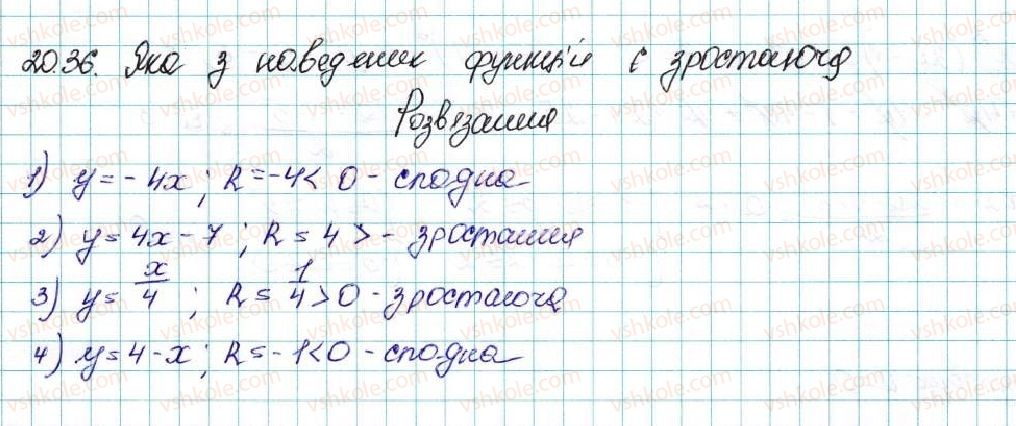 20.36. Яка з наведених функцій є зростаюча
Розвязання
1) y = - 4x ; R = -4 < 0 - спадна
2) y = 4x - 7 ; R = 4 > - зростання
3) y = x/4 ; R = 1/4 > 0 - зростаюча
4) y = 4 - x ; R = - 1 < 0 - спадна
vshkole.com